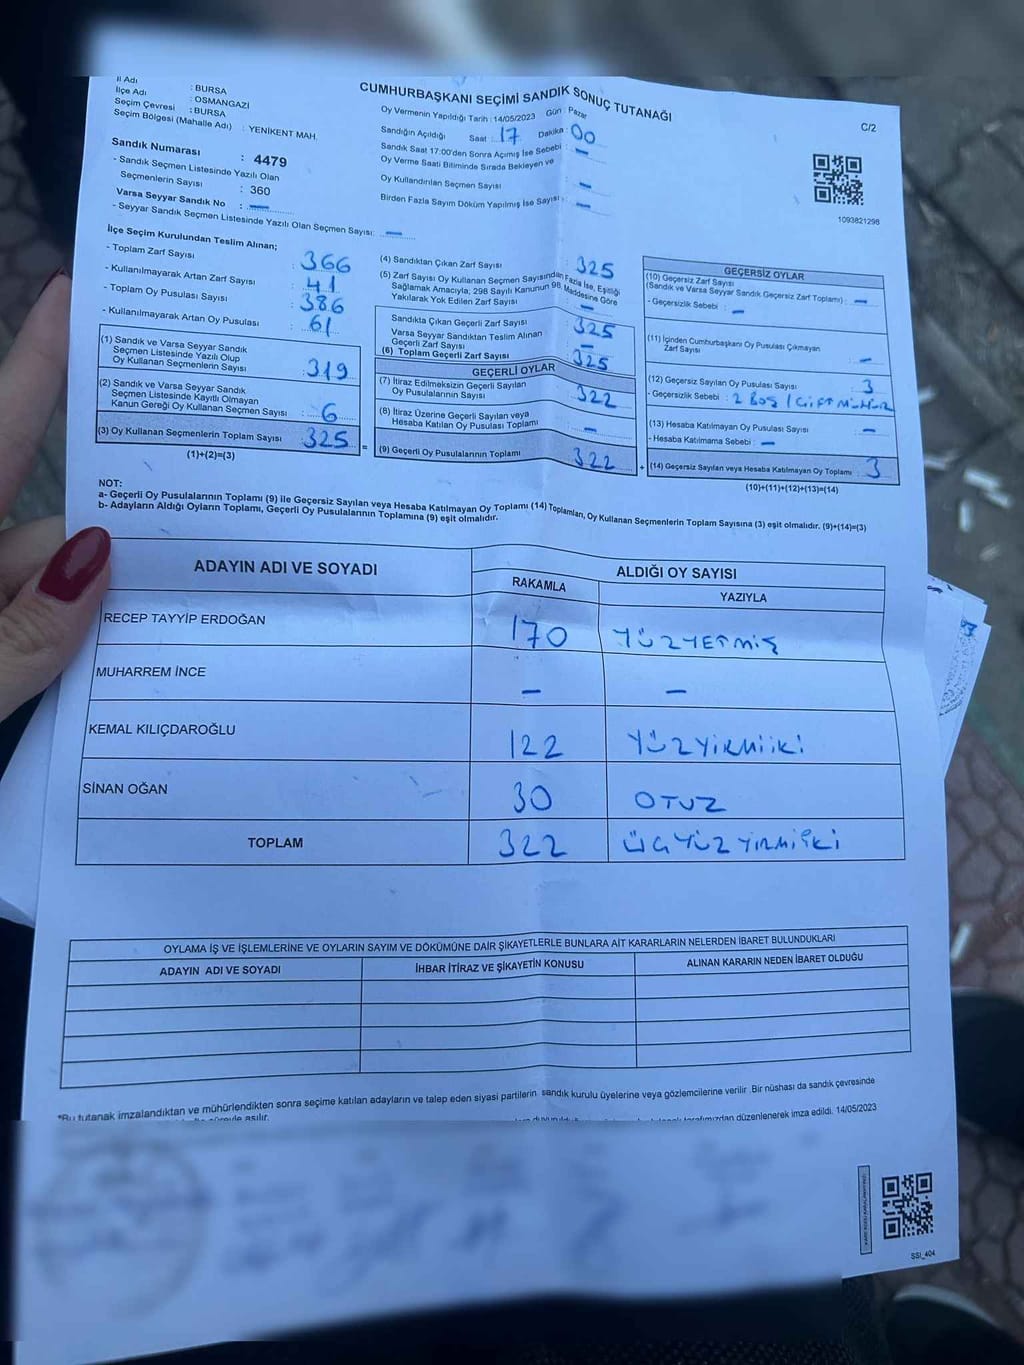 CUMHURBAŞKANI SEÇİMİ SANDIK SONUÇ TUTANAĞI
C/2
İl Adı : BURSA
İlçe Adı : OSMANGAZİ
Seçim Çevresi : BURSA
Seçim Bölgesi (Mahalle Adı) : YENİKENT MAH.
Sandık Numarası : 4479
- Sandık Seçmen Listesinde Yazılı Olan
Seçmenlerin Sayısı : 360
Varsa Seyyar Sandık No : —
- Seyyar Sandık Seçmen Listesinde Yazılı Olan Seçmen Sayısı: —
Oy Vermenin Yapıldığı Tarih : 14/05/2023 Gün : Pazar
Sandığın Açıldığı Saat : 17 Dakika : 00
Sandık Saat 17:00'den Sonra Açılmış İse Sebebi : —
Oy Verme Saati Bitiminde Sırada Bekleyen ve
Oy Kullandırılan Seçmen Sayısı : —
Birden Fazla Sayım Döküm Yapılmış İse Sayısı : —
1093821298
İlçe Seçim Kurulundan Teslim Alınan;
- Toplam Zarf Sayısı : 366
- Kullanılmayarak Artan Zarf Sayısı : 41
- Toplam Oy Pusulası Sayısı : 386
- Kullanılmayarak Artan Oy Pusulası : 61
(1) Sandık ve Varsa Seyyar Sandık
Seçmen Listesinde Yazılı Olup
Oy Kullanan Seçmenlerin Sayısı : 319
(2) Sandık ve Varsa Seyyar Sandık
Seçmen Listesinde Kayıtlı Olmayan
Kanun Gereği Oy Kullanan Seçmen Sayısı : 6
(3) Oy Kullanan Seçmenlerin Toplam Sayısı : 325
(1)+(2)=(3)
(4) Sandıktan Çıkan Zarf Sayısı : 325
(5) Zarf Sayısı Oy Kullanan Seçmen Sayısından Fazla İse, Eşitliği
Sağlamak Amacıyla; 298 Sayılı Kanunun 98. Maddesine Göre
Yakılarak Yok Edilen Zarf Sayısı : —
Sandıkta Çıkan Geçerli Zarf Sayısı : 325
Varsa Seyyar Sandıktan Teslim Alınan
Geçerli Zarf Sayısı : —
(6) Toplam Geçerli Zarf Sayısı : 325
GEÇERLİ OYLAR
(7) İtiraz Edilmeksizin Geçerli Sayılan
Oy Pusulasının Sayısı : 322
(8) İtiraz Üzerine Geçerli Sayılan veya
Hesaba Katılan Oy Pusulası Toplamı : —
(9) Geçerli Oy Pusulalarının Toplamı : 322
GEÇERSİZ OYLAR
(10) Geçersiz Zarf Sayısı
(Sandık ve Varsa Seyyar Sandık Geçersiz Zarf Toplamı) : —
- Geçersizlik Sebebi : —
(11) İçinden Cumhurbaşkanı Oy Pusulası Çıkmayan
Zarf Sayısı : —
(12) Geçersiz Sayılan Oy Pusulası Sayısı : 3
- Geçersizlik Sebebi : 2 BOŞ 1 ÇİFT MÜHÜR
(13) Hesaba Katılmayan Oy Pusulası Sayısı : —
- Hesaba Katılmama Sebebi : —
(14) Geçersiz Sayılan veya Hesaba Katılmayan Oy Toplamı : 3
(10)+(11)+(12)+(13)=(14)
NOT:
a- Geçerli Oy Pusulalarının Toplamı (9) ile Geçersiz Sayılan veya Hesaba Katılmayan Oy Toplamı (14) Toplamları, Oy Kullanan Seçmenlerin Toplam Sayısına (3) eşit olmalıdır. (9)+(14)=(3)
b- Adayların Aldığı Oyların Toplamı, Geçerli Oy Pusulalarının Toplamına (9) eşit olmalıdır.
ADAYIN ADI VE SOYADI ALDIĞI OY SAYISI
RAKAMLA YAZIYLA
RECEP TAYYİP ERDOĞAN 170 YÜZYETMİŞ
MUHARREM İNCE — —
KEMAL KILIÇDAROĞLU 122 YÜZYİRMİİKİ
SİNAN OĞAN 30 OTUZ
TOPLAM 322 ÜÇYÜZYİRMİİKİ
OYLAMA İŞ VE İŞLEMLERİNE VE OYLARIN SAYIM VE DÖKÜMÜNE DAİR ŞİKAYETLERLE BUNLARA AİT KARARLARIN NELERDEN İBARET BULUNDUKLARI
ADAYIN ADI VE SOYADI İHBAR İTİRAZ VE ŞİKAYETİN KONUSU ALINAN KARARIN NEDEN İBARET OLDUĞU
*Bu tutanak imzalandıktan ve mühürlendikten sonra seçime katılan adayların ve talep eden siyasi partilerin sandık kurulu üyelerine veya gözlemcilerine verilir .Bir nüshası da sandık çevresinde
asılır. tarafımızdan düzenlenerek imza edildi. 14/05/2023
SSI_404